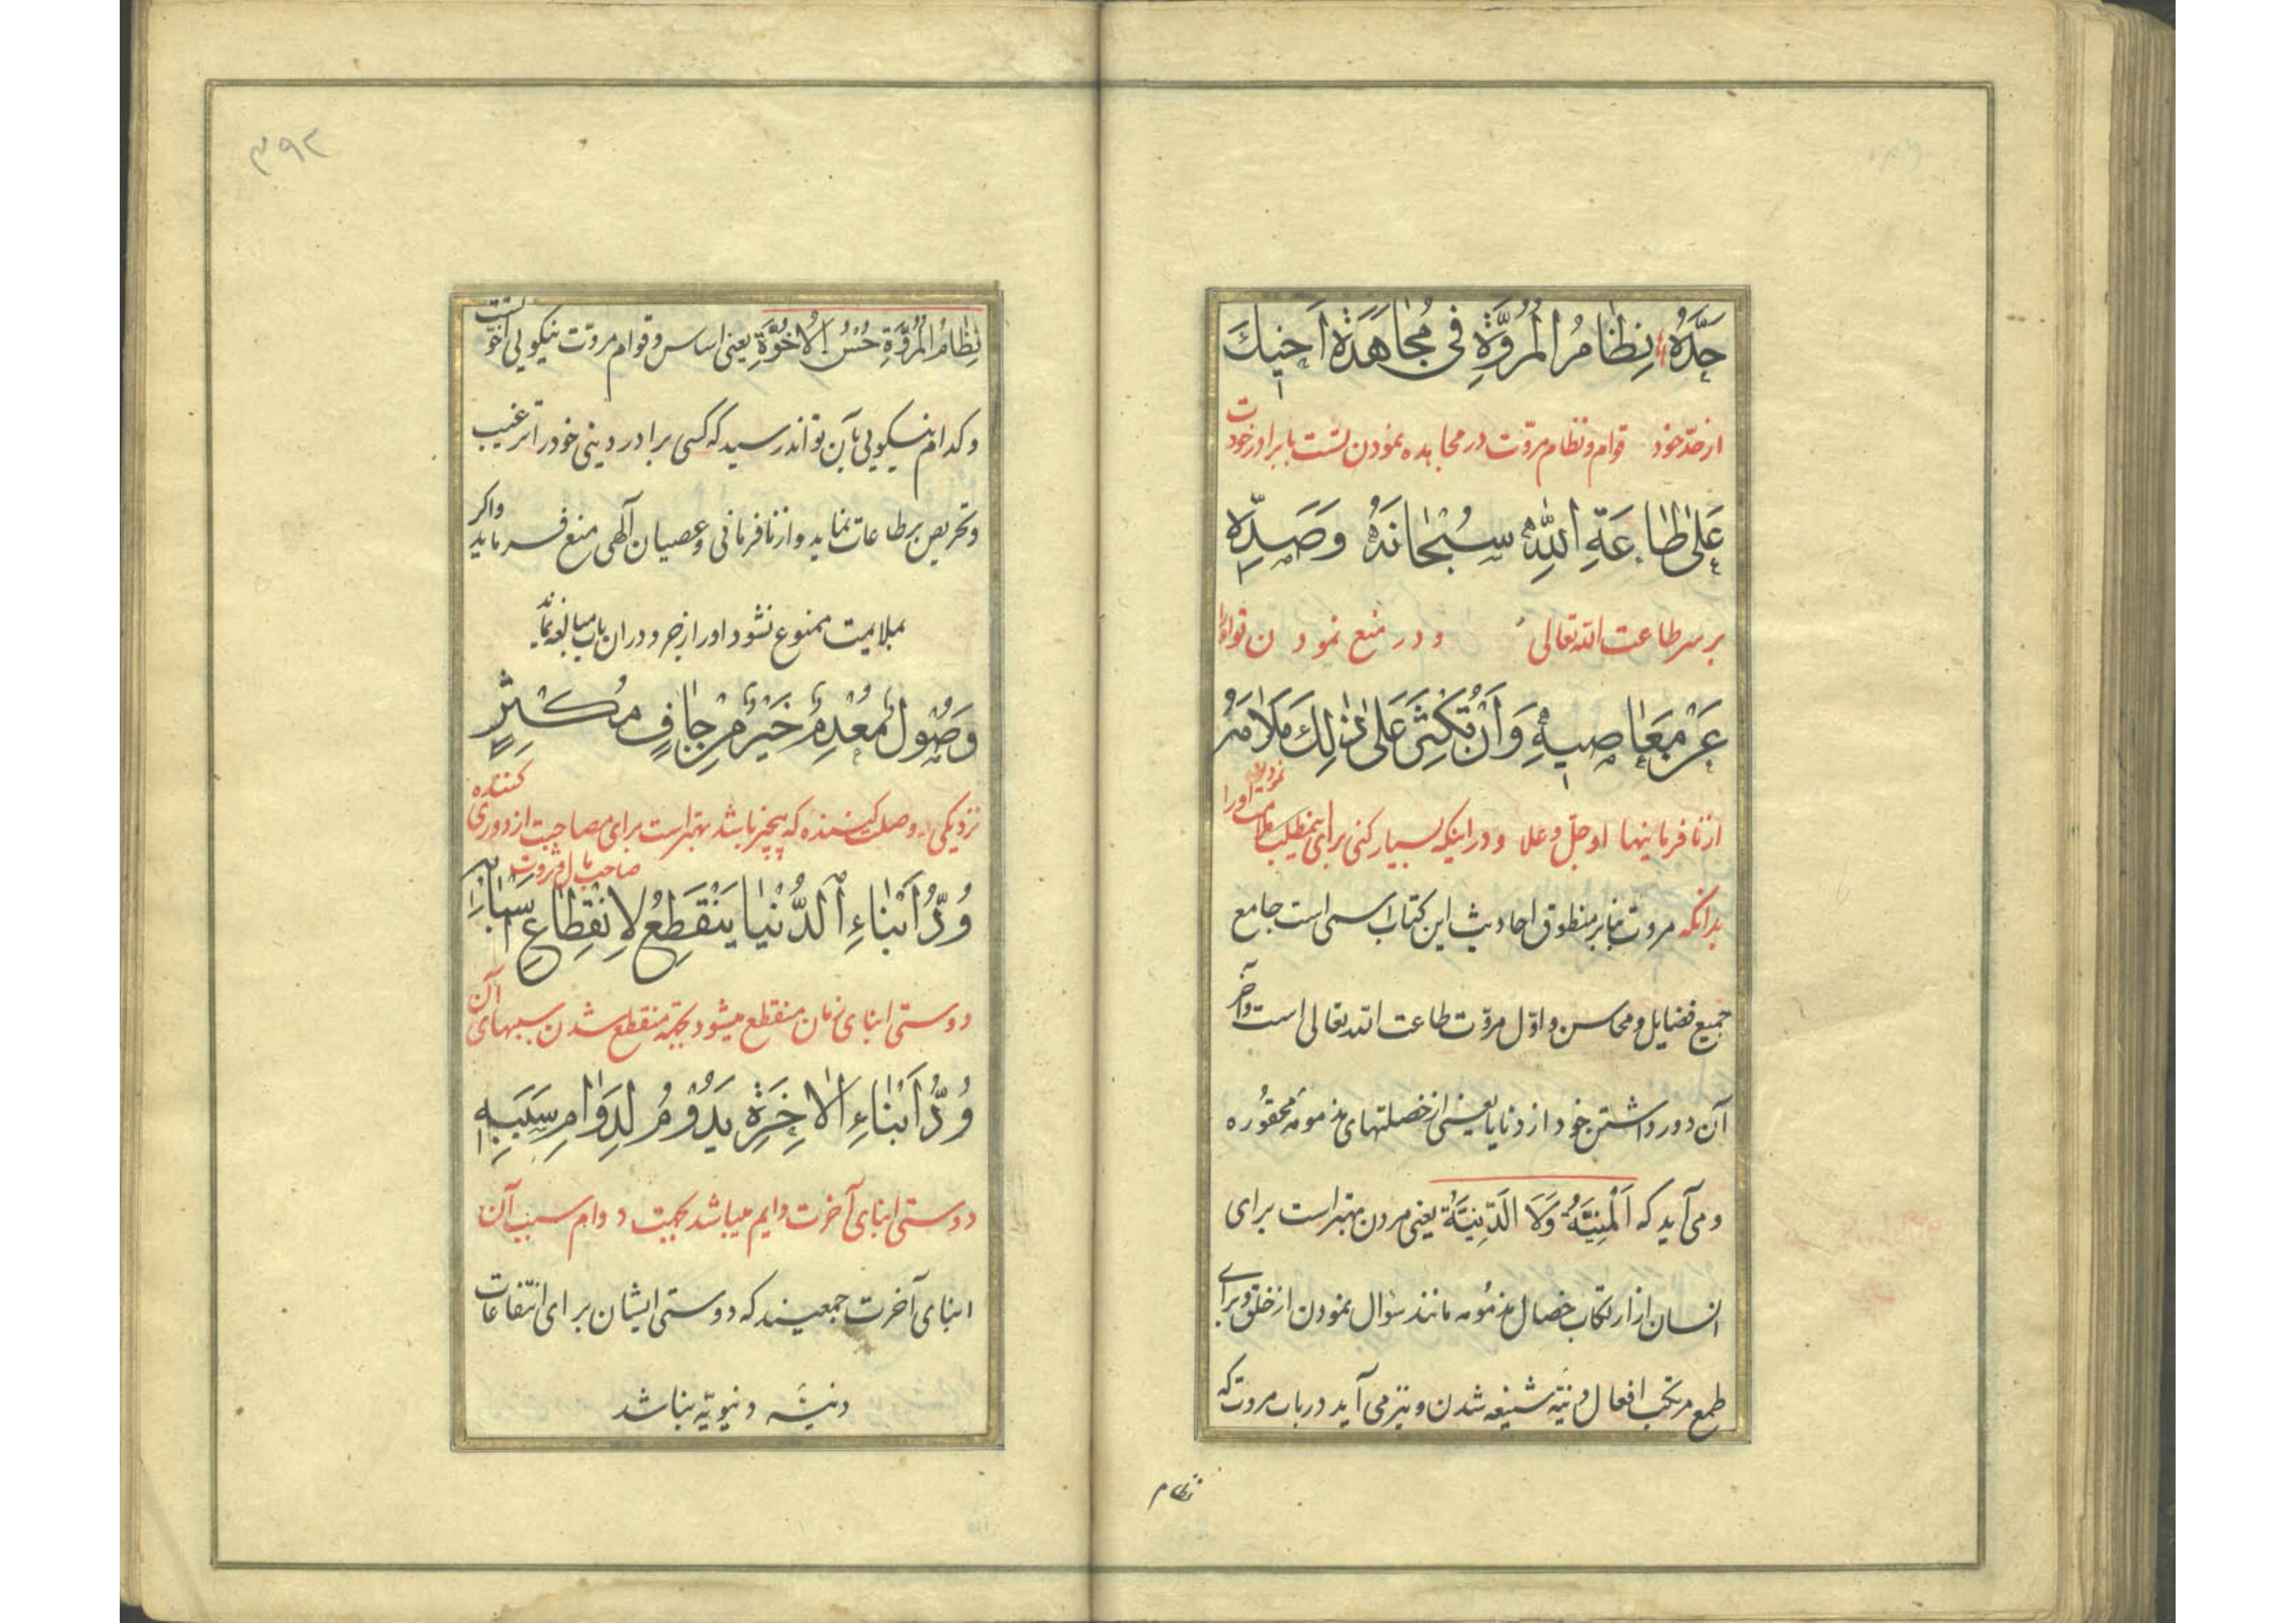 حَدَّهُ نِظَامُ الْمُرُوَّةِ فِی مُجَاهَدَةِ اَخِیكَ
از حدّ خود قوام و نظام مروّت در مجاهده نمودن تست با برادر خودت
عَلٰی طَاعَةِ اللّٰهِ سُبْحَانَهُ وَصَدِّهِ
بر سر طاعت الله تعالی و در منع نمودن تو او را
عَنْ مَعَاصِیهِ وَاَنْ تُكْثِرَ عَلٰی ذٰلِكَ مَلَامَهُ
از نافرمانیها او جلّ و علا و در اینکه بسیار کنی برای اینمطلب ملامت نمودن او را
بدانکه مروت بنا بر منطوق احادیث این کتاب اسمی است جامع
جمیع فضایل و محاسن و اوّل مروّت طاعت الله تعالی است و آخر
آن دور داشتن خود از دنایا یعنی از خصلتهای مذمومه محقوره
و می آید که اَلْمَنِیَّةُ وَلَا الدَّنِیَّةُ یعنی مردن بهتر است برای
انسان از ارتکاب خصال مذمومه مانند سؤال نمودن از خلق و برای
طمع مرتکب افعال دنیّه شنیعه شدن و نیز می آید در باب مروت که
نظام
۳۹۲
نِظَامُ الْمُرُوَّةِ حُسْنُ الْاُخُوَّةِ یعنی اساس و قوام مروّت نیکویی اخوّتست
و کدام نیکویی بآن تواند رسید که کسی برادر دینی خود را ترغیب
و تحریص بر طاعات نماید و از نافرمانی و عصیان آلهی منع فرماید و اگر
بملایمت ممنوع نشود او را زجر و در ان باب مبالغه نماید
وَصُولٌ مُعْدِمٌ خَیْرٌ مِنْ جَافٍ مُكْثِرٍ
نزدیکی و وصل کننده که بیچیز باشد بهتر است برای مصاحبت از دوری کننده
صاحب مال و ثروت
وُدُّ اَبْنَاءِ الدُّنْیَا یَنْقَطِعُ لِانْقِطَاعِ اَسْبَابِهِ
دوستی ابنای زمان منقطع میشود بجهة منقطع شدن سببهای آن
وُدُّ اَبْنَاءِ الْاٰخِرَةِ یَدُوْمُ لِدَوَامِ سَبَبِهِ
دوستی ابنای آخرت دایم میباشد بجهت دوام سبب آن
ابنای آخرت جمعیند که دوستی ایشان برای انتفاعات
دنیّه دنیویّه نباشد